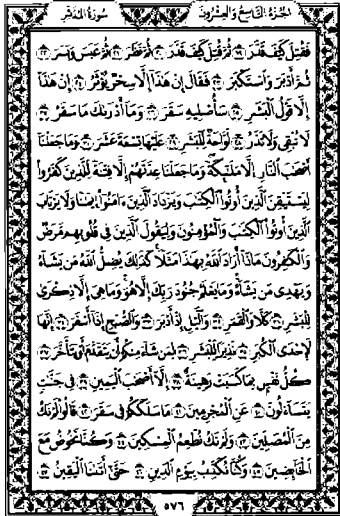 الجزء التاسع والعشرون سورة المدثر
فَقُتِلَ كَيْفَ قَدَّرَ ١٩ ثُمَّ قُتِلَ كَيْفَ قَدَّرَ ٢٠ ثُمَّ نَظَرَ ٢١ ثُمَّ عَبَسَ وَبَسَرَ ٢٢
ثُمَّ أَدْبَرَ وَٱسْتَكْبَرَ ٢٣ فَقَالَ إِنْ هَٰذَآ إِلَّا سِحْرٌ يُؤْثَرُ ٢٤ إِنْ هَٰذَآ
إِلَّا قَوْلُ ٱلْبَشَرِ ٢٥ سَأُصْلِيهِ سَقَرَ ٢٦ وَمَآ أَدْرَىٰكَ مَا سَقَرُ ٢٧
لَا تُبْقِى وَلَا تَذَرُ ٢٨ لَوَّاحَةٌ لِّلْبَشَرِ ٢٩ عَلَيْهَا تِسْعَةَ عَشَرَ ٣٠ وَمَا جَعَلْنَآ
أَصْحَٰبَ ٱلنَّارِ إِلَّا مَلَٰٓئِكَةً وَمَا جَعَلْنَا عِدَّتَهُمْ إِلَّا فِتْنَةً لِّلَّذِينَ كَفَرُوا۟
لِيَسْتَيْقِنَ ٱلَّذِينَ أُوتُوا۟ ٱلْكِتَٰبَ وَيَزْدَادَ ٱلَّذِينَ ءَامَنُوٓا۟ إِيمَٰنًا وَلَا يَرْتَابَ
ٱلَّذِينَ أُوتُوا۟ ٱلْكِتَٰبَ وَٱلْمُؤْمِنُونَ وَلِيَقُولَ ٱلَّذِينَ فِى قُلُوبِهِم مَّرَضٌ
وَٱلْكَٰفِرُونَ مَاذَآ أَرَادَ ٱللَّهُ بِهَٰذَا مَثَلًا كَذَٰلِكَ يُضِلُّ ٱللَّهُ مَن يَشَآءُ
وَيَهْدِى مَن يَشَآءُ وَمَا يَعْلَمُ جُنُودَ رَبِّكَ إِلَّا هُوَ وَمَا هِىَ إِلَّا ذِكْرَىٰ
لِلْبَشَرِ ٣١ كَلَّا وَٱلْقَمَرِ ٣٢ وَٱلَّيْلِ إِذْ أَدْبَرَ ٣٣ وَٱلصُّبْحِ إِذَآ أَسْفَرَ ٣٤ إِنَّهَا
لَإِحْدَى ٱلْكُبَرِ ٣٥ نَذِيرًا لِّلْبَشَرِ ٣٦ لِمَن شَآءَ مِنكُمْ أَن يَتَقَدَّمَ أَوْ يَتَأَخَّرَ ٣٧
كُلُّ نَفْسٍۭ بِمَا كَسَبَتْ رَهِينَةٌ ٣٨ إِلَّآ أَصْحَٰبَ ٱلْيَمِينِ ٣٩ فِى جَنَّٰتٍ
يَتَسَآءَلُونَ ٤٠ عَنِ ٱلْمُجْرِمِينَ ٤١ مَا سَلَكَكُمْ فِى سَقَرَ ٤٢ قَالُوا۟ لَمْ نَكُ
مِنَ ٱلْمُصَلِّينَ ٤٣ وَلَمْ نَكُ نُطْعِمُ ٱلْمِسْكِينَ ٤٤ وَكُنَّا نَخُوضُ مَعَ
ٱلْخَآئِضِينَ ٤٥ وَكُنَّا نُكَذِّبُ بِيَوْمِ ٱلدِّينِ ٤٦ حَتَّىٰٓ أَتَىٰنَا ٱلْيَقِينُ ٤٧
٥٧٦